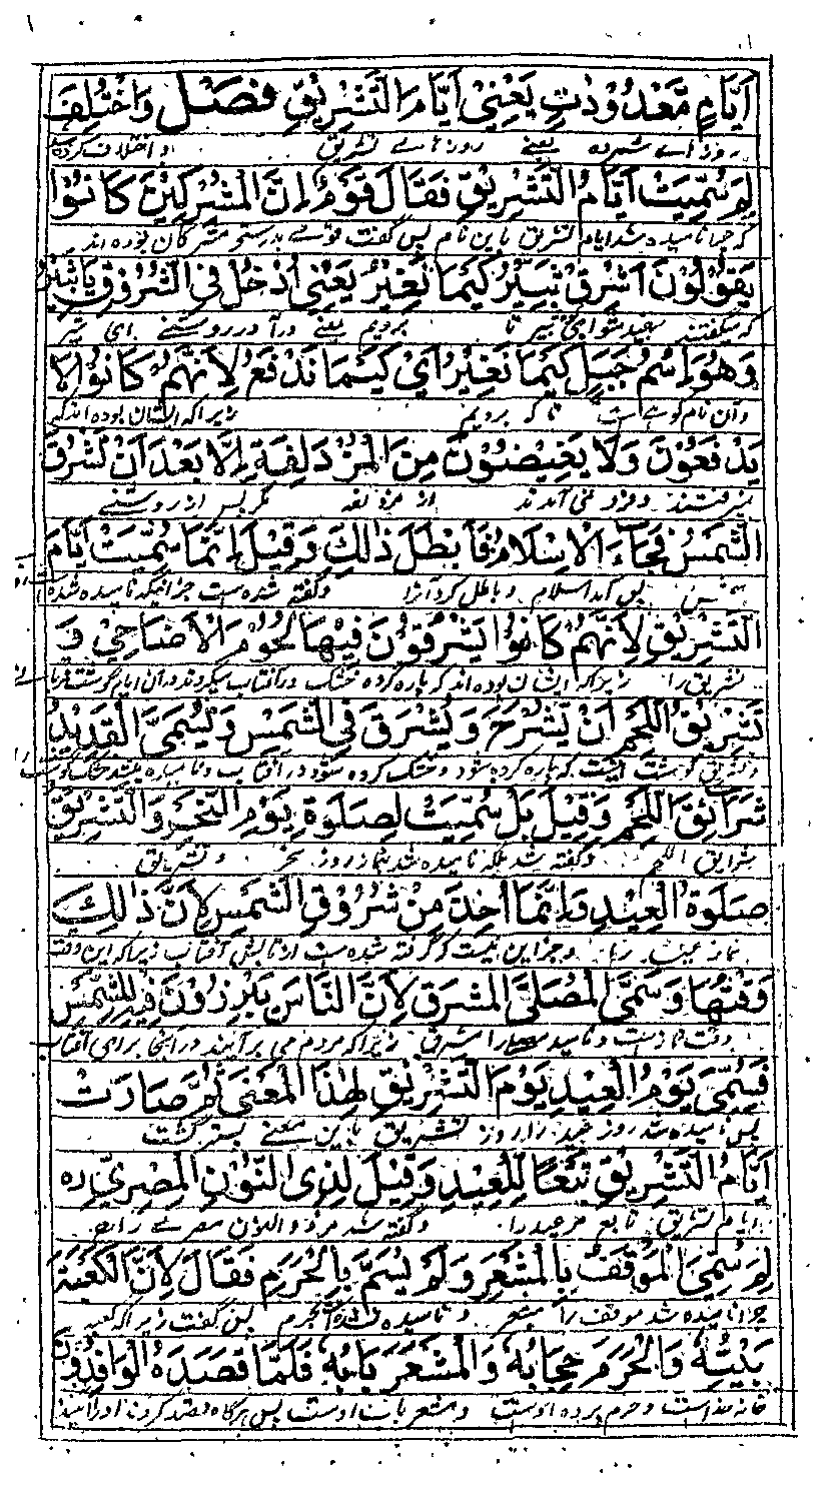 اَيَّامٍ مَّعْدُوْدٰتٍ يَعْنِيْ اَيَّامَ التَّشْرِيْقِ فَصْلٌ وَاخْتُلِفَ
روزهاے شمرده یعنے روزهاے تشریق و اختلاف کرده شد
لِمَ سُمِّيَتْ اَيَّامُ التَّشْرِيْقِ فَقَالَ قَوْمٌ اِنَّ الْمُشْرِكِيْنَ كَانُوْا
که چرا نامیده شد ایام تشریق باین نام پس گفت قومے بدرستیکه مشرکان بوده اند
يَقُوْلُوْنَ اَشْرِقْ ثَبِيْرُ كَيْمَا نُغِيْرُ يَعْنِيْ اُدْخُلْ فِي الشُّرُوْقِ يَا ثَبِيْرُ
که میگفتند ثبیر تا برویم یعنے درآ در روشنے اے ثبیر
وَهُوَ اِسْمُ جَبَلٍ كَيْمَا نُغِيْرُ اَيْ كَيْمَا نَدْفَعُ لِاَنَّهُمْ كَانُوْا لَا
و آن نام کوهے است تا که برویم زیرا که ایشان بوده اند که
يَدْفَعُوْنَ وَلَا يَفِيْضُوْنَ مِنَ الْمُزْدَلِفَةِ اِلَّا بَعْدَ اَنْ تَشْرُقَ
نمیرفتند و فرود نمی آمدند از مزدلفه مگر پس از روشنے
الشَّمْسُ فَجَاءَ الْاِسْلَامُ فَاَبْطَلَ ذٰلِكَ وَقِيْلَ اِنَّمَا سُمِّيَتْ اَيَّامَ
شمس پس آمد اسلام و باطل کرد آنرا و گفته شده است جز اینیکه نامیده شده
التَّشْرِيْقِ لِاَنَّهُمْ كَانُوْا يُشَرِّقُوْنَ فِيْهَا لُحُوْمَ الْاَضَاحِيْ وَ
تشریق را زیرا که ایشان بوده اند که پاره کرده خشک در آفتاب میکردند در آن ایام گوشت
تَشْرِيْقُ اللَّحْمِ اَنْ يُّشْرَحَ وَيُشَرَّقَ فِي الشَّمْسِ وَيُسَمَّى الْقَدِيْدُ
و تشریق گوشت اینست که پاره کرده شود و خشک کرده شود در آفتاب و نامیده میشد خشک گوشت
شَرَائِقَ اللَّحْمِ وَقِيْلَ بَلْ سُمِّيَتْ لِصَلٰوةِ يَوْمِ النَّحْرِ وَالتَّشْرِيْقُ
شرایق اللحم و گفته شد بلکه نامیده شد بنماز روز نحر و تشریق
صَلٰوةُ الْعِيْدِ وَاِنَّمَا اُخِذَ مِنْ شُرُوْقِ الشَّمْسِ لِاَنَّ ذٰلِكَ
نماز عید و جز این نیست که گرفته شده است از تابش آفتاب زیرا که این وقت
وَقْتُهَا وَسُمِّيَ الْمُصَلَّى الْمُشَرَّقَ لِاَنَّ النَّاسَ يَبْرُزُوْنَ فِيْهِ لِلشَّمْسِ
وقت نماز است و نامیده مصلے را مشرق زیرا که مردم می برآیند در آنجا برای آفتاب
فَسُمِّيَ يَوْمُ الْعِيْدِ يَوْمَ التَّشْرِيْقِ لِهٰذَا الْمَعْنٰى ثُمَّ صَارَتْ
پس نامیده شد روز عید را روز تشریق باین معنے پستر گشت
اَيَّامُ التَّشْرِيْقِ تَبَعًا لِلْعِيْدِ وَقِيْلَ لِذِي النُّوْنِ الْمِصْرِيِّ رہ
ایام تشریق تابع مر عید را و گفته شد مر ذو النون مصرے را
لِمَ سُمِّيَ الْمَوْقِفُ بِالْمَشْعَرِ وَلَمْ يُسَمَّ بِالْحَرَمِ فَقَالَ لِاَنَّ الْكَعْبَةَ
چرا نامیده شد موقف را مشعر و نامیده نشد بحرم پس گفت زیرا که کعبه
بَيْتُهُ وَالْحَرَمَ حِجَابُهُ وَالْمَشْعَرَ بَابُهُ فَلَمَّا قَصَدَهُ الْوَافِدُوْنَ
خانه خدا است و حرم پرده اوست و مشعر باب اوست پس هرگاه قصد کردند او را